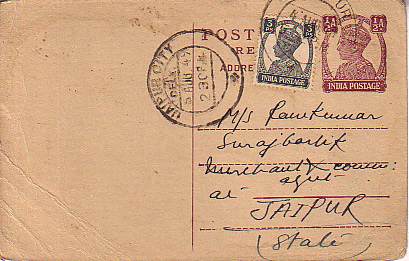 POST
RE
ADDRE
3 Ps 3 Ps
INDIA POSTAGE
½A ½A
INDIA POSTAGE
JAIPUR CITY
DELY.
5 AUG 49
2.30 P.M.
M/S Ramkumar
Surajbaksh
Merchant & comm:
agent
at
JAIPUR
(State)